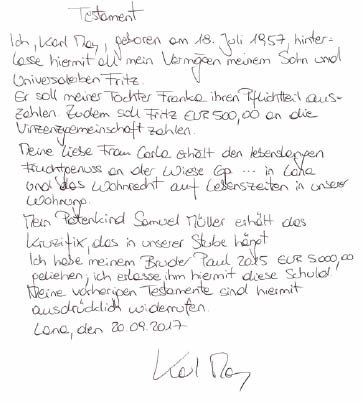 Testament
Ich, Karl May, geboren am 18. Juli 1957, hinter-
lasse hiermit all mein Vermögen meinem Sohn und
Universalerben Fritz.
Er soll meiner Tochter Franka ihren Pflichtteil aus-
zahlen. Zudem soll Fritz EUR 500,00 an die
Vinzenzgemeinschaft zahlen.
Meine liebe Frau Carla erhält den lebenslangen
Fruchtgenuss an der Wiese Gp ... in Lana
und das Wohnrecht auf Lebenszeiten in unserer
Wohnung.
Mein Patenkind Samuel Müller erhält das
Kruzifix, das in unserer Stube hängt
Ich habe meinem Bruder Paul 2015 EUR 5000,00
geliehen; ich erlasse ihm hiermit diese Schuld.
Meine vorherigen Testamente sind hiermit
ausdrücklich widerrufen.
Lana, den 20.09.2017
Karl May